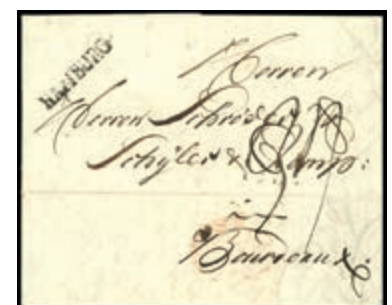 HAMBURG
Herren
Herren Schröder &
Schÿler & Comp:
Bourdeaux.